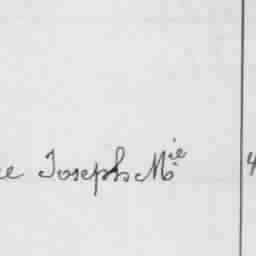 Joseph M^ie 4